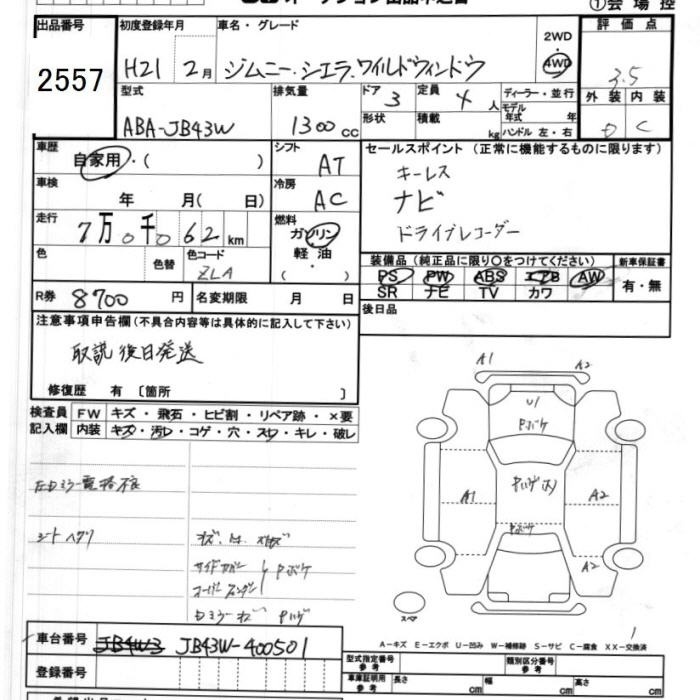 ①会場控
出品番号 初度登録年月 車名・グレード 2WD 評価点
2557 H21 2月 ジムニー・シエラ.ワイルドウィンドウ 4WD 3.5
型式 排気量 ドア 定員 ディーラー・並行 外装 内装
ABA-JB43W 1300cc 3 4人 モデル年式 年 D C
形状 積載 kg ハンドル 左・右
車歴 シフト セールスポイント (正常に機能するものに限ります)
自家用・( ) AT キーレス
車検 冷房 ナビ
年 月( 日) AC ドライブレコーダー
走行 燃料
7万0千062km ガソリン・軽油・( )
色 色替 色コード 装備品(純正品に限り〇をつけてください) 新車保証書
ZLA PS PW ABS エアB AW 有・無
R券 8700円 名変期限 月 日 SR ナビ TV カワ
注意事項申告欄(不具合内容等は具体的に記入して下さい) 後日品
取説後日発送
修復歴 有 [箇所 ]
検査員 FW キズ・飛石・ヒビ割・リペア跡・×要
記入欄 内装 キズ・汚れ・コゲ・穴・スレ・キレ・破レ
A1 A2
U1
Pボケ
左Dミラー電格不良
A1 PハゲホI A2
シートヘタリ
Pボケ
サイドカバー
オーバーフェンダー Pボケ
A2
Dミラーキズ Pハゲ
スペア
A-キズ E-エクボ U-凹み W-補修跡 S-サビ C-腐食 XX-交換済
車台番号 JB4W3 JB43W-400501
型式指定番号 参考 類別区分番号 参考
登録番号
車庫証明用 参考 長さ cm 幅 cm 高さ cm